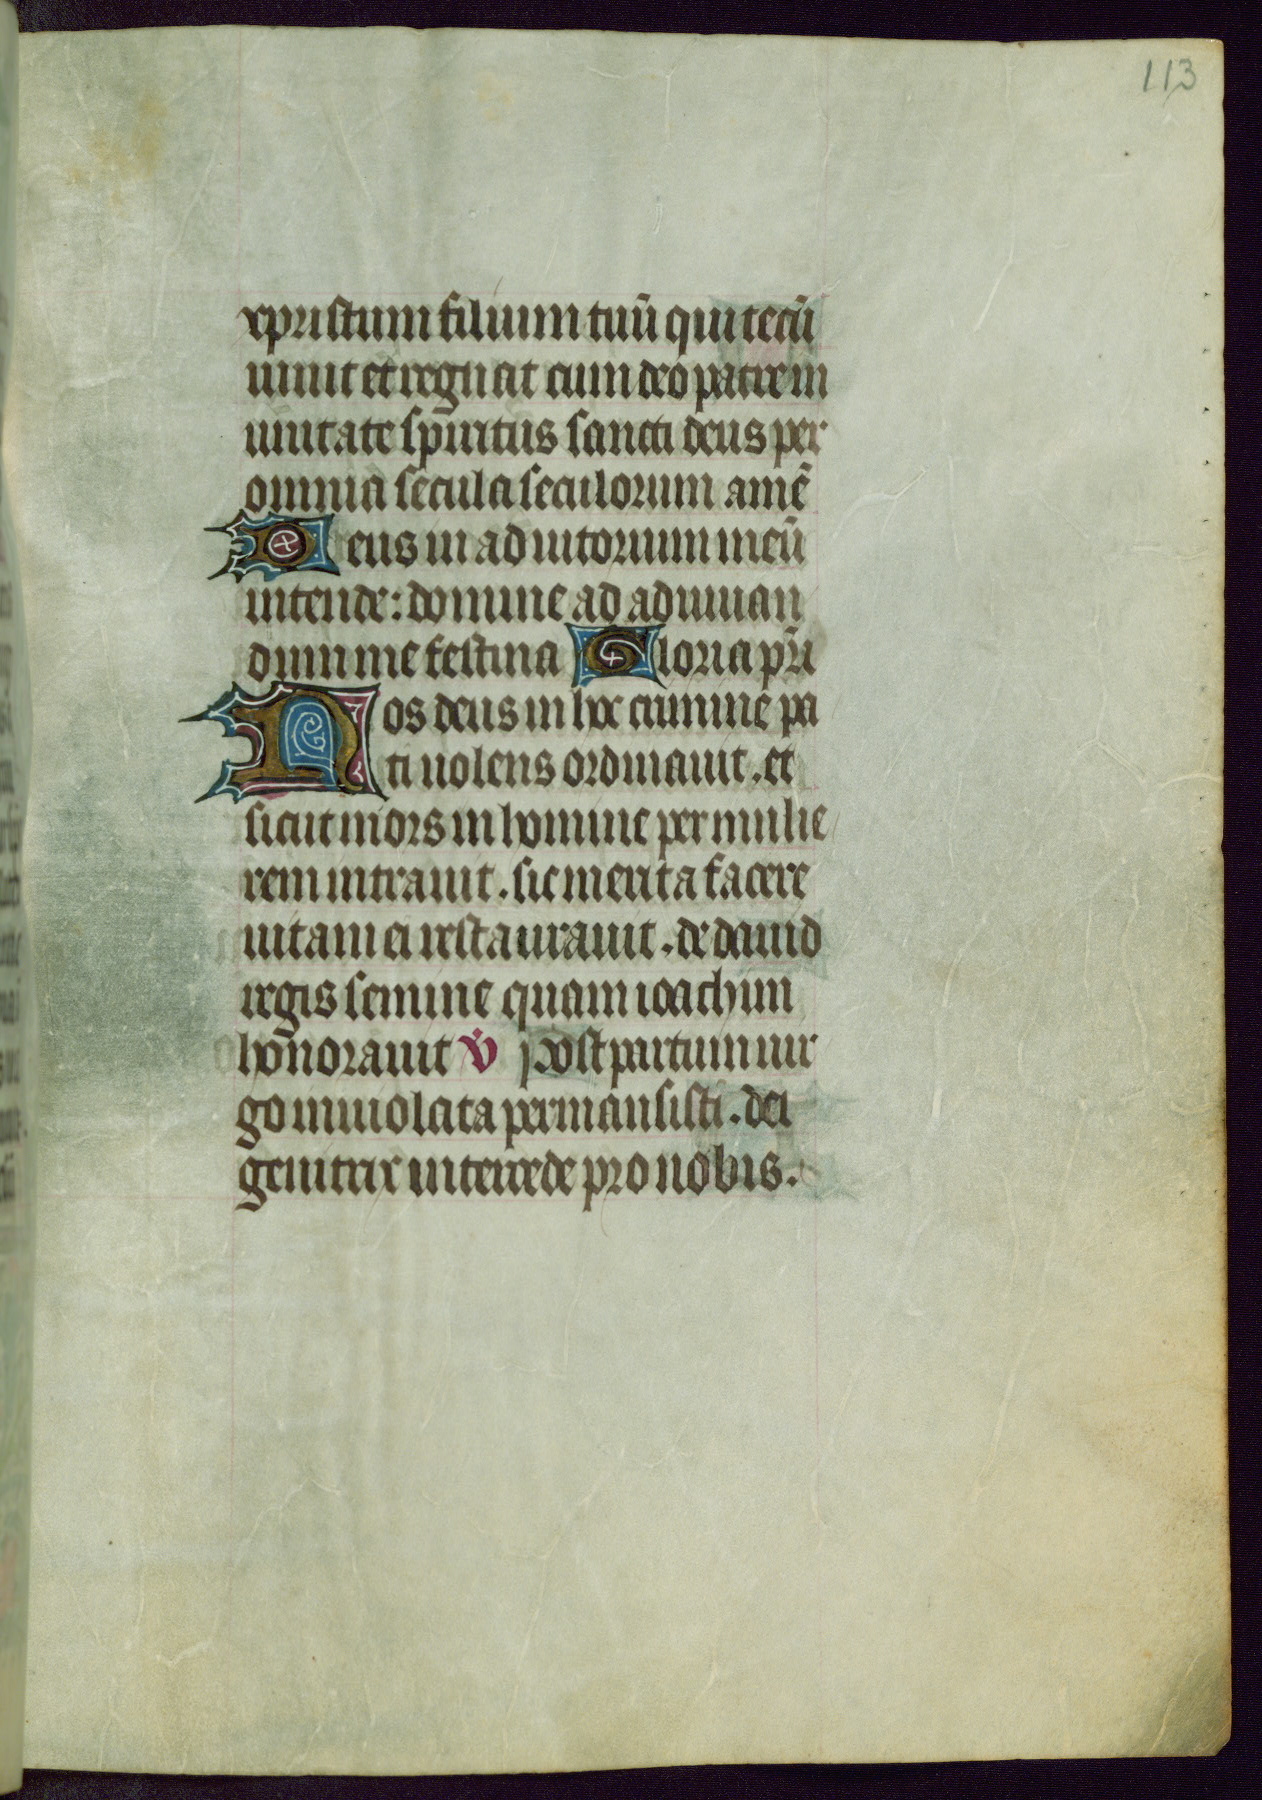 113
xpristum filium tuū qui tecū
uiuit et regnat cum deo patre in
unitate spiritus sancti deus per
omnia secula seculorum amē
Deus in adiutorium meū
intende: domine ad adiuuan
dum me festina Gloria pri
Nos deus in hoc crimine pa
ti nolens ordinauit. et
sicut mors in homine per mulie
rem intrauit. sic merita facere
uitam ei restaurauit. de dauid
regis semine quam ioachim
honorauit V Post partum uir
go inuiolata permansisti. dei
genitrix intercede pro nobis.